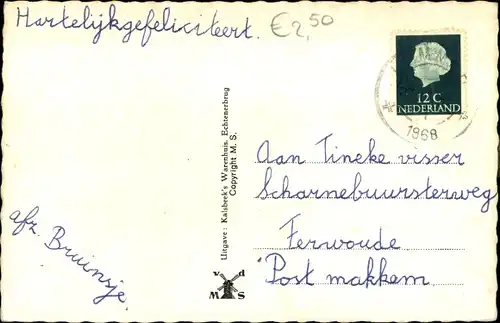 Hartelijkgefeliciteert.
€2,50
12 C
NEDERLAND
1968
Uitgave: Kalsbeek's Warenhuis, Echtenerbrug
Copyright M. S.
Aan Tineke visser
Scharnebuursterweg
Ferwoude
Post makkem
afz. Bruinsje
v d
M S